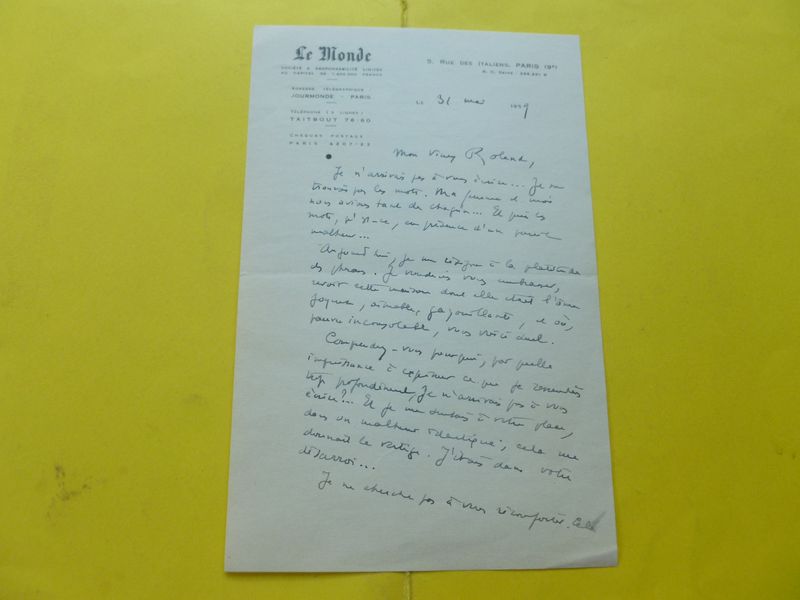 Le Monde
SOCIÉTÉ A RESPONSABILITÉ LIMITÉE
AU CAPITAL DE FRANCS
ADRESSE TÉLÉGRAPHIQUE
JOURMONDE - PARIS
TÉLÉPHONE LIGNES
TAITBOUT 76-60
CHEQUES POSTAUX
PARIS 4207-23
5, RUE DES ITALIENS, PARIS (9e)
R. C. SEINE
LE 31 mai 1959
Mon vieux Roland,
Je n'arrivais pas à vous écrire... Je ne
trouvais pas les mots. Ma femme et moi
nous avions tant de chagrin... Et puis les
mots, qu'est-ce, en présence d'un pareil
malheur...
Aujourd'hui, je me résigne à la platitude
des phrases. Je voudrais vous embrasser,
revoir cette maison dont elle était l'âme
joyeuse, aimable, gazouillante, et où,
pauvre inconsolable, vous voici seul.
Comprenez-vous pourquoi, par quelle
impuissance à exprimer ce que je ressentais
trop profondément, je n'arrivais pas à vous
écrire?... Et je me sentais à votre place,
dans un malheur identique; cela me
donnait le vertige. J'étais dans votre
désarroi...
Je ne cherche pas à vous réconforter. Cela